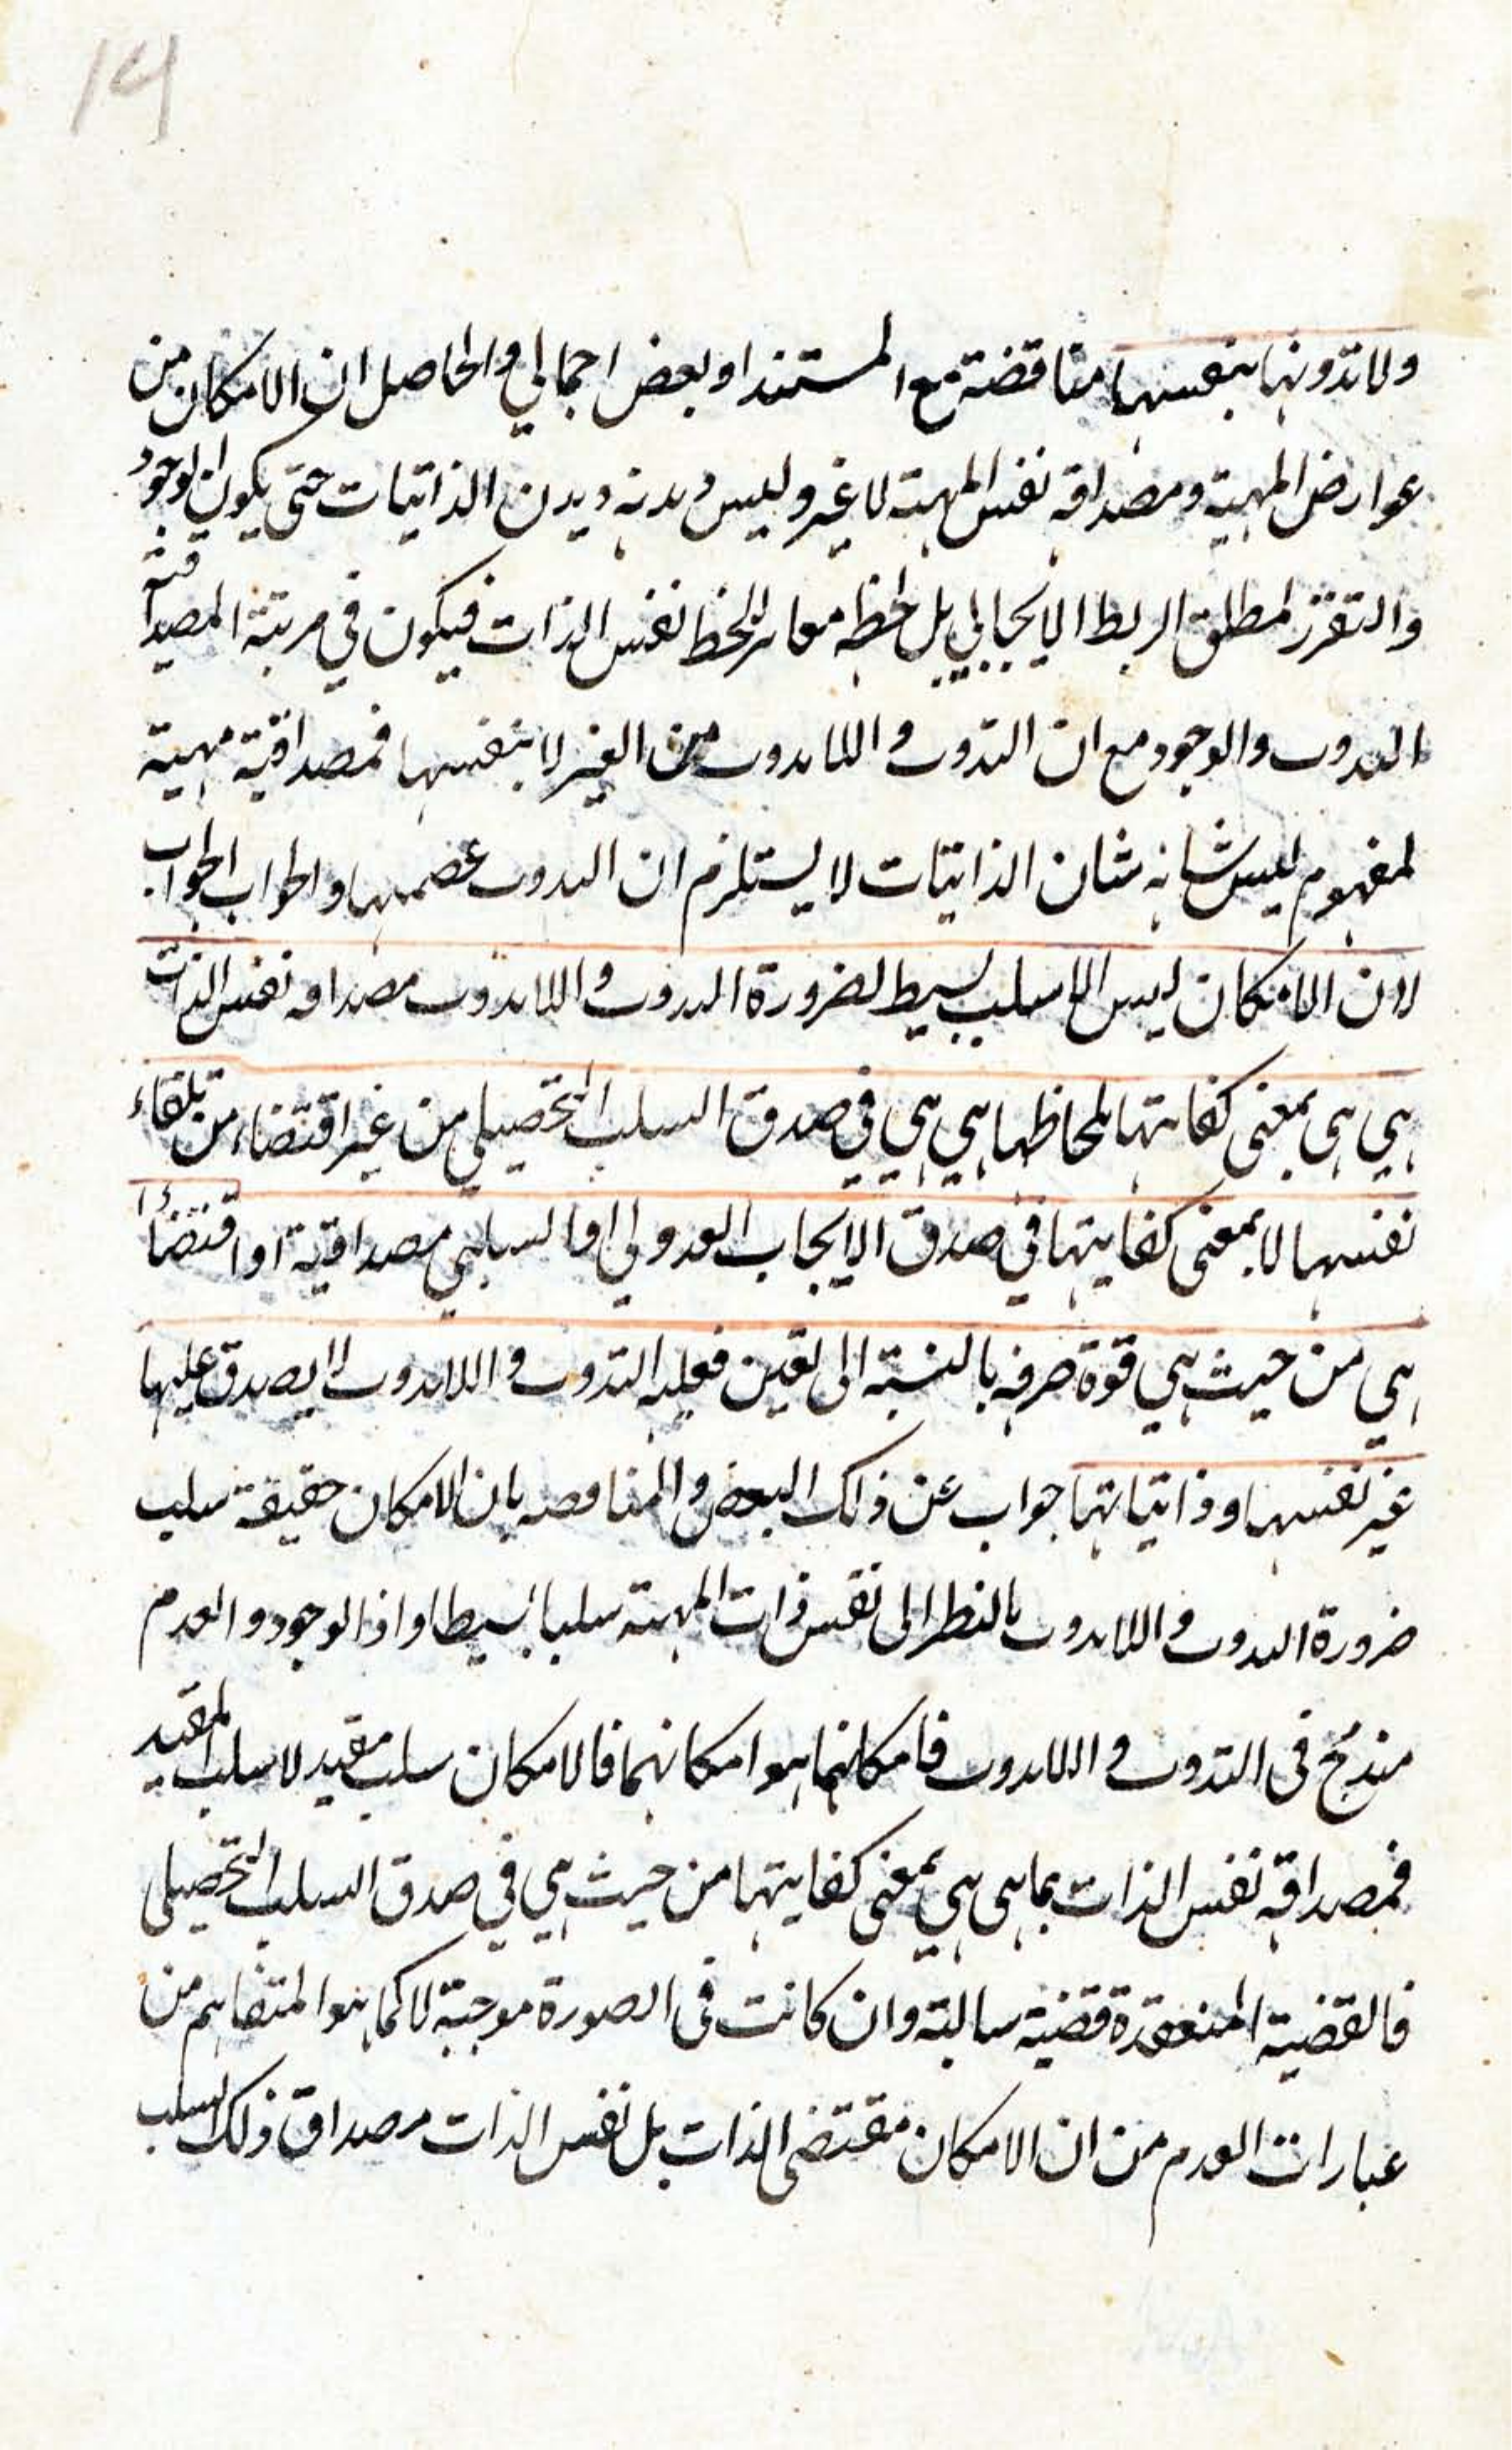 14
ولا تذوتها بنفسها مناقضة مع المستند او بعض اجمالي والحاصل ان الامكان من
عوارض المهية ومصداقه نفس المهية لا غير وليس ديدنه ديدن الذاتيات حتى يكون الوجود
والتقرر لمطلق الربط الايجابي بل لحظه مغاير للحظ نفس الذات فيكون في مرتبة المصداقية
التذوت والوجود مع ان التذوت واللاتذوت من الغير لا بنفسها فمصداقية مهية
لمفهوم ليس شانه شان الذاتيات لا يستلزم ان التذوت والجواب الجواب
لان الامكان ليس الا سلب بسيط لضرورة التذوت واللاتذوت مصداقه نفس الذات
هي هي بمعنى كفايتها بلحاظها هي هي في صدق السلب التحصيلي من غير اقتضاء من تلقاء
نفسها لا بمعنى كفايتها في صدق الايجاب العدولي او السلبي مصداقية او اقتضاءا
هي من حيث هي قوة صرفه بالنسبة الى تعين فعليه التذوت واللاتذوت لا يصدق عليها
غير نفسها وذاتياتها جواب عن ذلك البعض والمناقضه بان الامكان حقيقة سلب
ضرورة التذوت واللاتذوت بالنظر الى نفس ذات المهية سلبا بسيطا واذ الوجود والعدم
مندمج فى التذوت واللاتذوت فامكانهما هو امكانهما فالامكان سلب مقيد لا سلب المقيد
فمصداقه نفس الذات بما هى هي بمعنى كفايتها من حيث هي في صدق السلب التحصيلى
فالقضية المنعقدة قضية سالبة وان كانت فى الصورة موجبة لا كما هو المتفاهم من
عبارات القوم من ان الامكان مقتضى الذات بل نفس الذات مصداق ذلك السلب